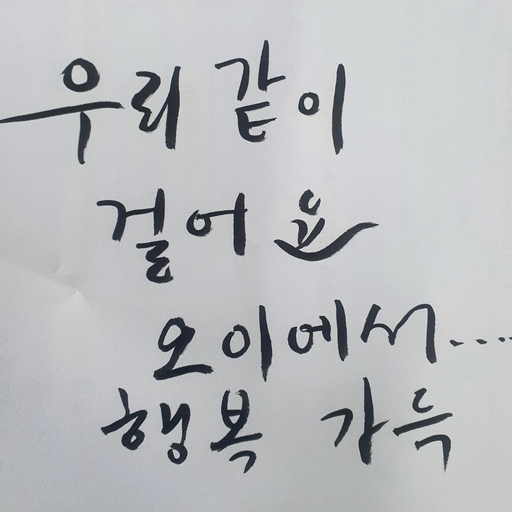 우리 같이
걸어요
오이에서.....
행복 가득